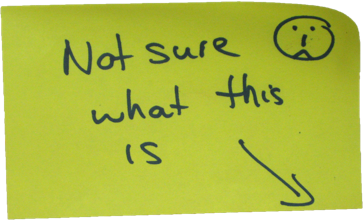 Not sure
what this
is